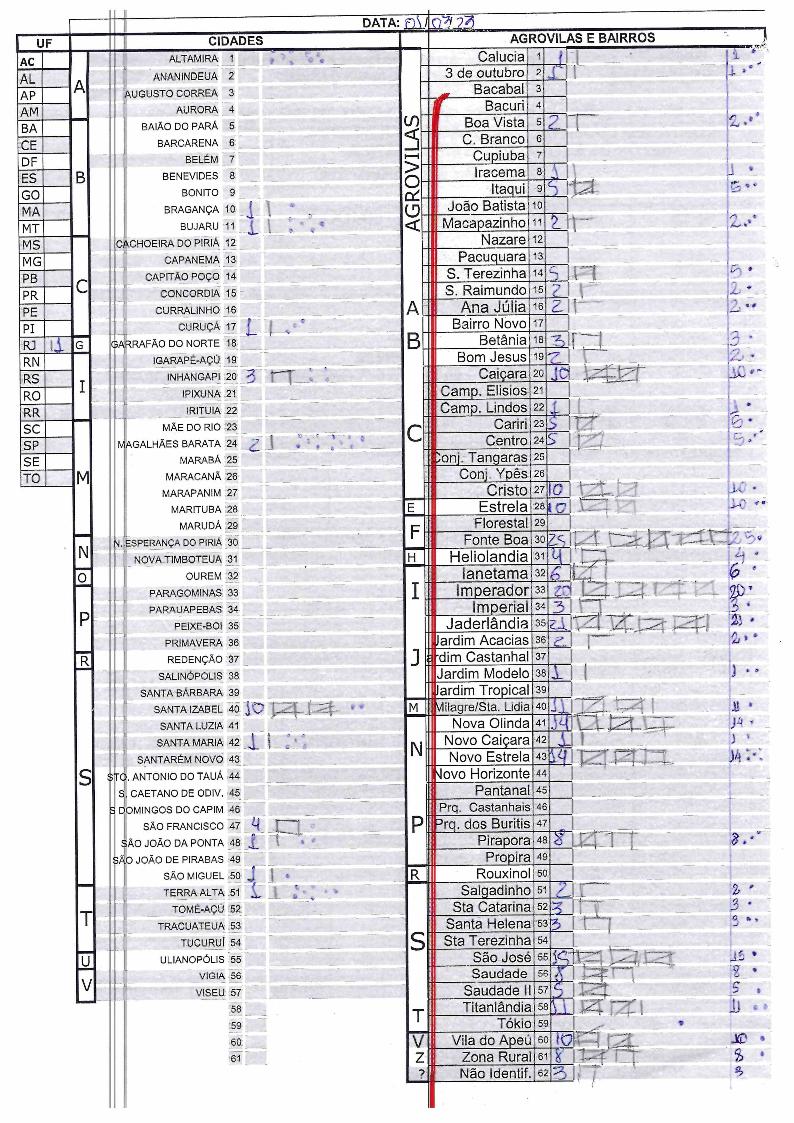 DATA: 01/07/23
UF
CIDADES
AGROVILAS E BAIRROS
AC
AL
AP
AM
BA
CE
DF
ES
GO
MA
MT
MS
MG
PB
PR
PE
PI
RJ 1
RN
RS
RO
RR
SC
SP
SE
TO
A
ALTAMIRA 1
ANANINDEUA 2
AUGUSTO CORREA 3
AURORA 4
B
BAIÃO DO PARÁ 5
BARCARENA 6
BELÉM 7
BENEVIDES 8
BONITO 9
BRAGANÇA 10 1
BUJARU 11 1
C
CACHOEIRA DO PIRIÁ 12
CAPANEMA 13
CAPITÃO POÇO 14
CONCORDIA 15
CURRALINHO 16
CURUÇÁ 17 1
G
GARRAFÃO DO NORTE 18
I
IGARAPÉ-AÇÚ 19
INHANGAPI 20 3
IPIXUNA 21
IRITUIA 22
M
MÃE DO RIO 23
MAGALHÃES BARATA 24 2
MARABÁ 25
MARACANÃ 26
MARAPANIM 27
MARITUBA 28
MARUDÁ 29
N
N. ESPERANÇA DO PIRIÁ 30
NOVA TIMBOTEUA 31
O
OUREM 32
P
PARAGOMINAS 33
PARAUAPEBAS 34
PEIXE-BOI 35
PRIMAVERA 36
R
REDENÇÃO 37
S
SALINÓPOLIS 38
SANTA BÁRBARA 39
SANTA IZABEL 40 10
SANTA LUZIA 41
SANTA MARIA 42 1
SANTARÉM NOVO 43
STO. ANTONIO DO TAUÁ 44
S. CAETANO DE ODIV. 45
S DOMINGOS DO CAPIM 46
SÃO FRANCISCO 47 4
SÃO JOÃO DA PONTA 48 1
SÃO JOÃO DE PIRABAS 49
SÃO MIGUEL 50 1
T
TERRA ALTA 51 1
TOMÉ-AÇÚ 52
TRACUATEUA 53
TUCURUÍ 54
U
ULIANOPÓLIS 55
V
VIGIA 56
VISEU 57
58
59
60
61
AGROVILAS
Calucia 1 1 1
3 de outubro 2 1 1
Bacabal 3
Bacuri 4
Boa Vista 5 2 2
C. Branco 6
Cupiuba 7
Iracema 8 1 1
Itaqui 9 5 5
João Batista 10
Macapazinho 11 2 2
Nazare 12
Pacuquara 13
S. Terezinha 14 5 5
S. Raimundo 15 2 2
A
Ana Júlia 16 2 2
B
Bairro Novo 17
Betânia 18 3 3
Bom Jesus 19 2 2
C
Caiçara 20 10 10
Camp. Elisios 21
Camp. Lindos 22 1 1
Cariri 23 5 5
Centro 24 5 5
Conj. Tangaras 25
Conj. Ypês 26
Cristo 27 10 10
E
Estrela 28 10 10
F
Florestal 29
Fonte Boa 30 25 25
H
Heliolandia 31 4 4
I
Ianetama 32 6 6
Imperador 33 20 20
Imperial 34 3 3
J
Jaderlândia 35 21 21
Jardim Acacias 36 2 2
Jardim Castanhal 37
Jardim Modelo 38 1 1
Jardim Tropical 39
M
Milagre/Sta. Lidia 40 11 11
N
Nova Olinda 41 14 14
Novo Caiçara 42 1 1
Novo Estrela 43 14 14
Novo Horizonte 44
P
Pantanal 45
Prq. Castanhais 46
Prq. dos Buritis 47
Pirapora 48 8 8
Propira 49
R
Rouxinol 50
S
Salgadinho 51 2 2
Sta Catarina 52 3 3
Santa Helena 53 3 3
Sta Terezinha 54
São José 55 15 15
Saudade 56 8 8
Saudade II 57 5 5
T
Titanlândia 58 11 11
Tókio 59
V
Vila do Apeú 60 10 10
Z
Zona Rural 61 8 8
?
Não Identif. 62 3 3